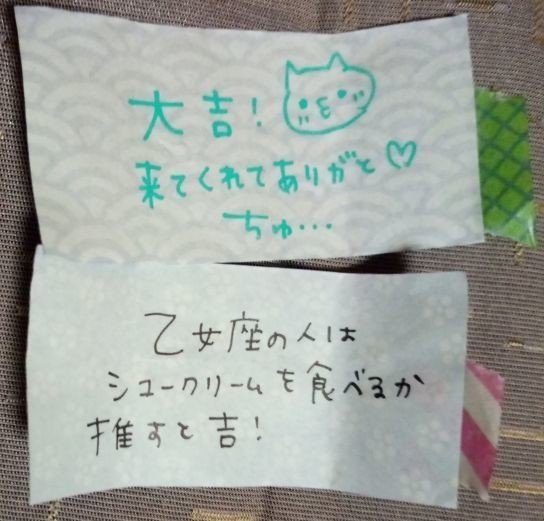 大吉!
来てくれてありがと♡
ちゅ…
乙女座の人は
シュークリームを食べるか
推すと吉!